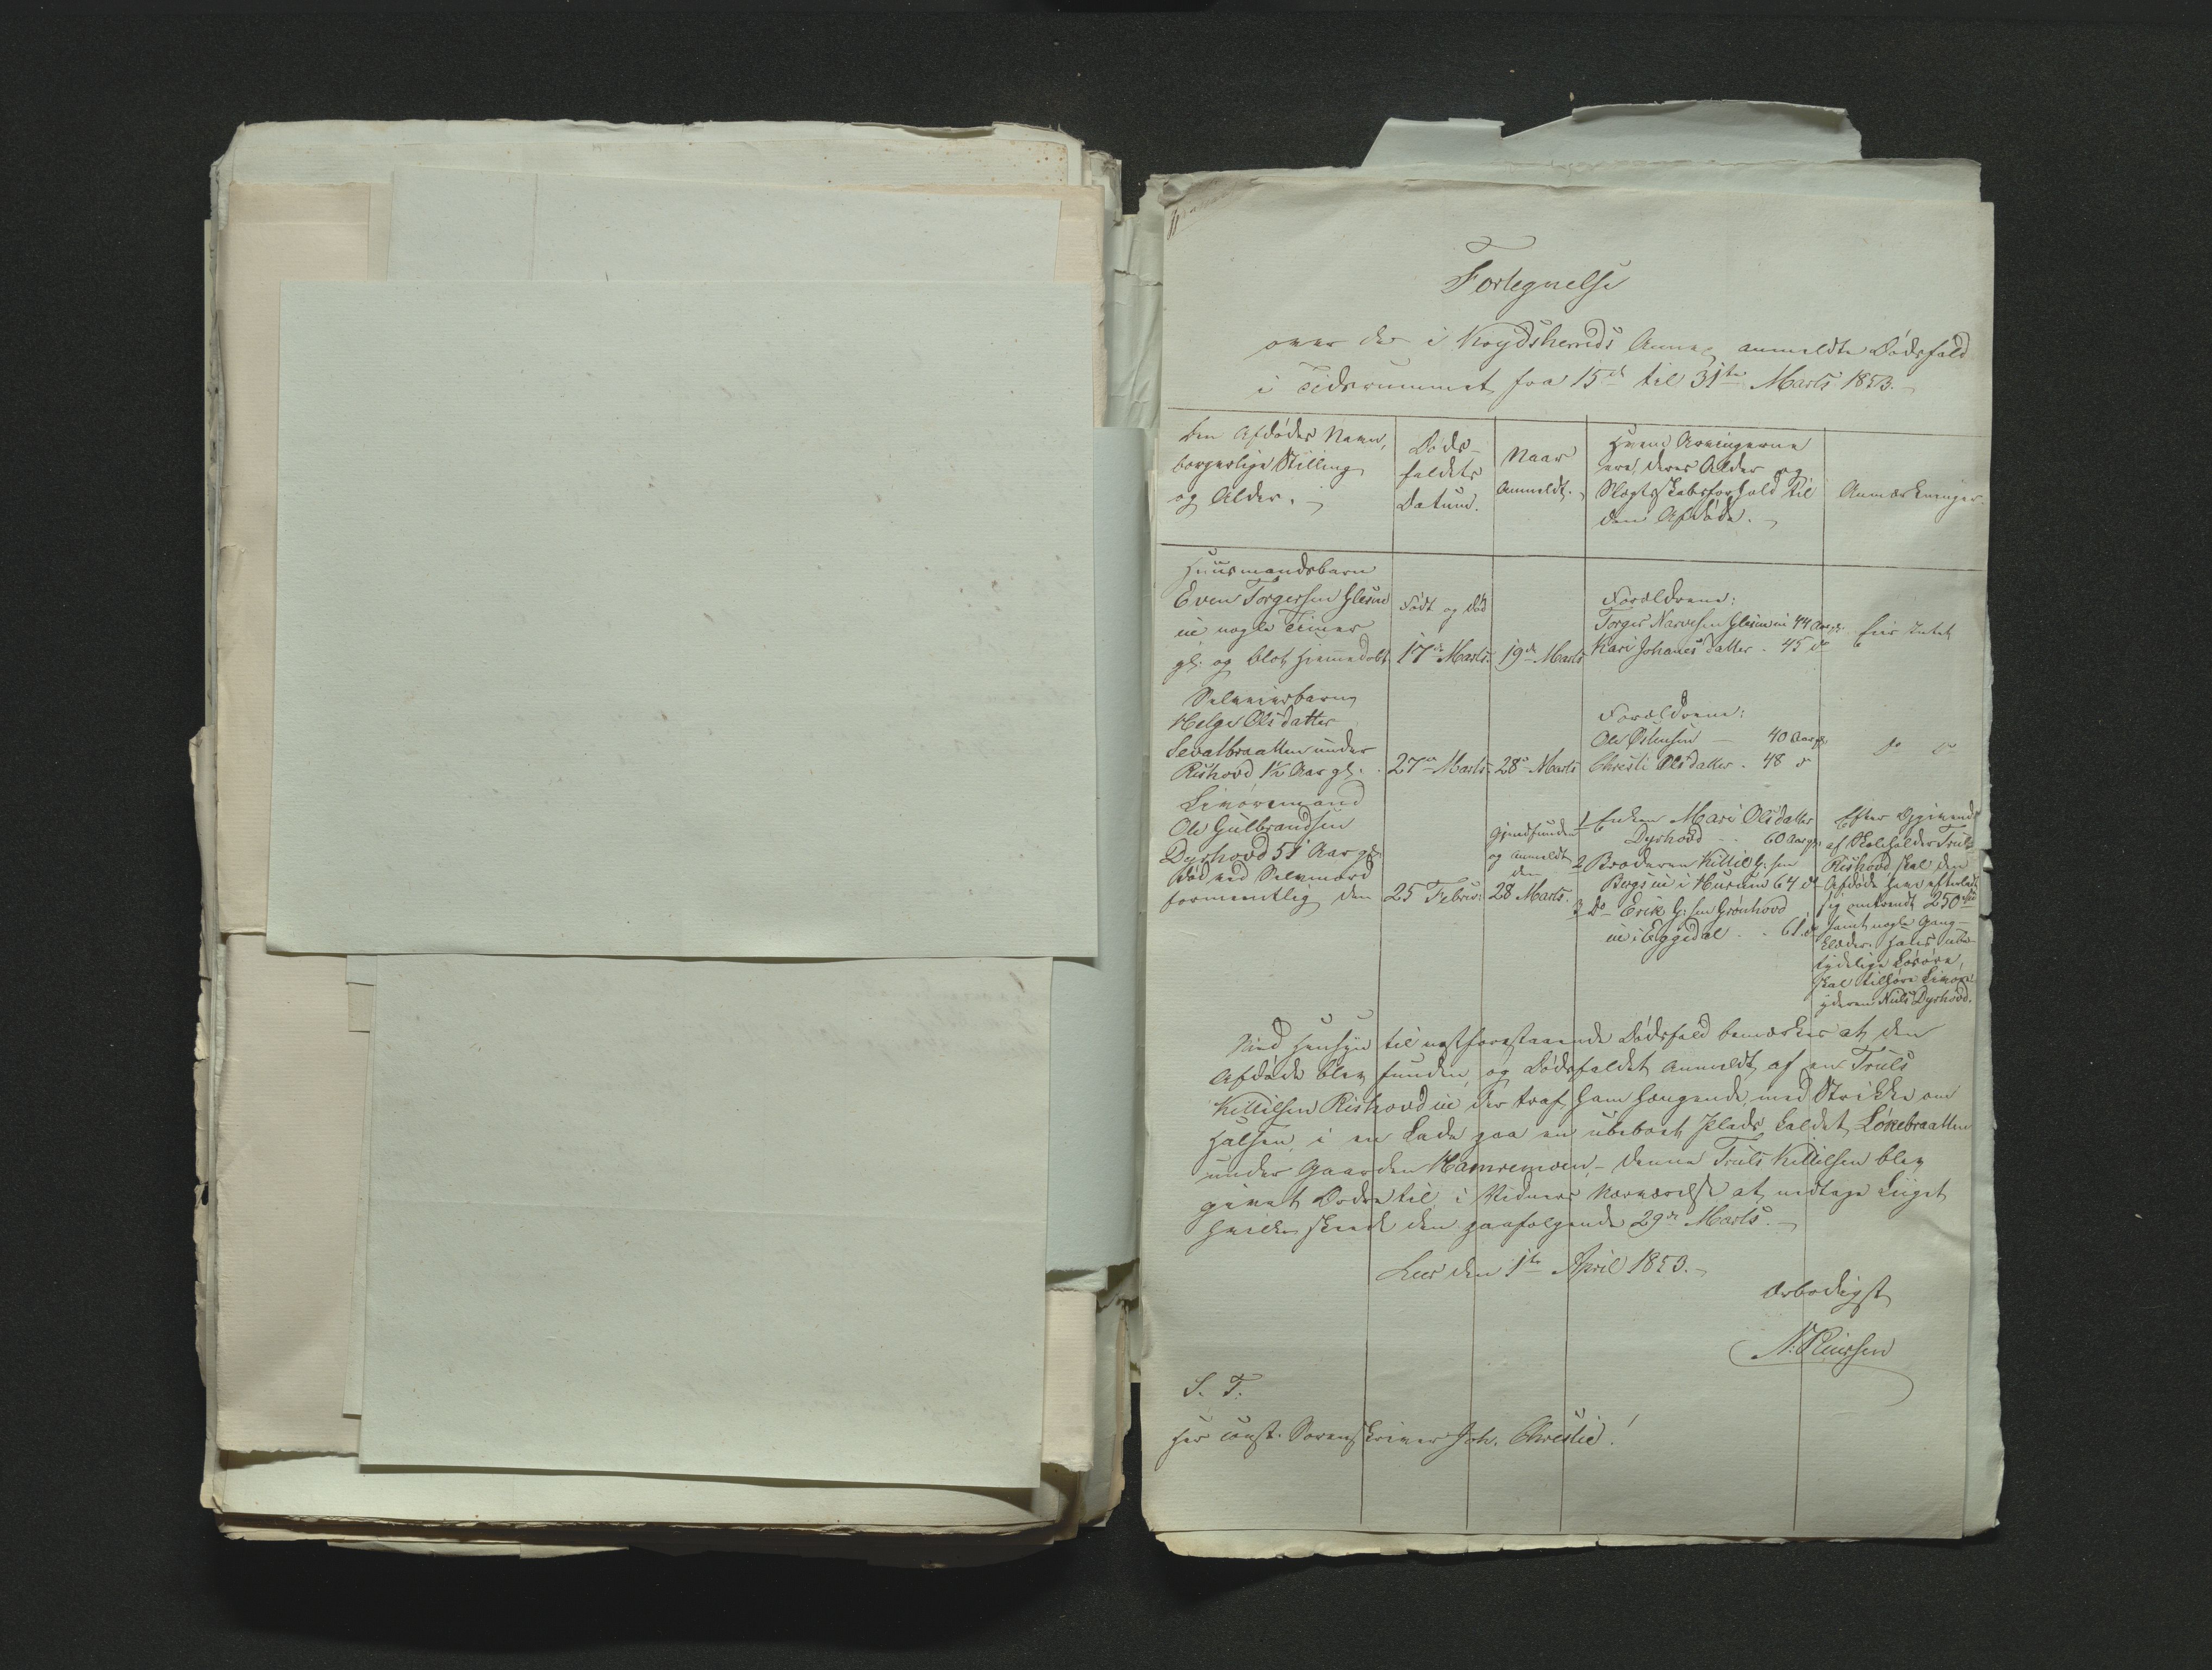 Fortegnelse
over de i Krydsherreds Annex anmeldte Dødsfald
i Tidsrummet fra 15de til 31te Marts 1853.
Den Afdødes Navn,
borgerlige Stilling
og Alder.
Døds-
faldets
Datum.
Naar
Anmeldt.
Hvem Arvingerne
ere, deres Alder og
Slægtskabsforhold til
den Afdøde.
Anmærkninger.
Huusmandsbarn
Even Torgersen Glesne
nogle Timer
gl. og blot hjemmedøbt
Født og død
17de Marts
19de Marts
Forældrene:
Torger Narvesen Glesne 44 Aar gl.
Kari Johannesdatter . 45 do
Eier Intet
Selveierbarn
Helge Olsdatter
Sevalbraatten under
Rishovd 1½ Aar gl.
27de Marts
28de Marts
Forældrene:
Ole Østensen — 40 Aar gl.
Christi Olsdatter . 48 do
do do
Livøremand
Ole Gulbrandsen
Dyrhovd 51 Aar gl.
Død ved Selvmord
formentlig den
25 Februar
Gjenfunden
og Anmeldt
den
28 Marts.
1 Enken Mari Olsdatter
Dyrhovd . . 60 Aar gl.
2 Broderen Killil G:sen
Bergs i 64 do
3 Do Erik G:sen Grønhovd
i Eggedal . . 61 do
Efter Opgivende
af Truls
Rishovd skal den
Afdøde have efterladt
sig omtrendt 250
samt nogle Gang-
klæder. Hans ube-
tydelige Løsøre,
skal tilhøre Livøre
yderen Niels Dyrhovd.
Med Hensyn til nestforestaaende Dødsfald bemærkes at den
Afdøde blev funden, og Dødsfaldet Anmeldt af en Truls
Killilsen Rishovd der traf ham hængende med Strikke om
Halsen, i en Lade paa en ubeboet Plads kaldet Lønebraatten
under Gaarden Hamremoen, – denne Truls Killilsen blev
givet Ordre til, i Vidners Nærværelse at nedtage Liiget
hvilket skeede den paafølgende 29de Marts.
Leer den 1te April 1853.
Ærbødigst
S. T.
Hr const. Sorenskriver Joh. Christie!